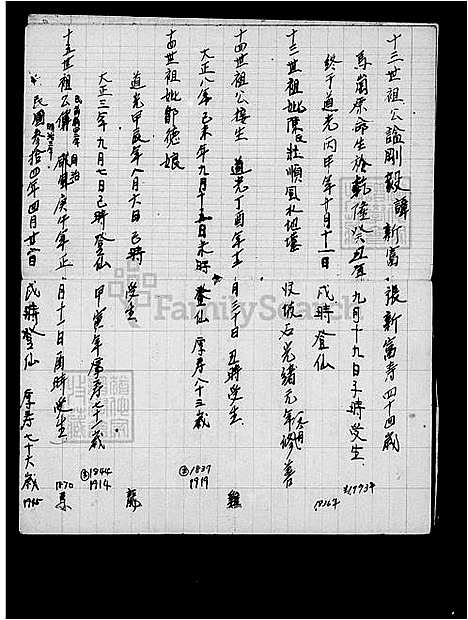 十三世祖公諡剛毅諱新富 張新富壽四十四歲
馬崗原命生於乾隆癸丑年九月十九日子時受生
終于道光丙申年十月十一日戌時登仙
※1793年
1836年
十三世祖妣陳氏莊順風水坦墩
坟坡石光緒元年修善
十四世祖公接生 道光丁酉年十二月三十日丑時受生 雞
大正八年己未年九月十五日未時登仙 享壽八十三歲
1837
1919
十四世祖妣鄒德娘
道光甲辰年八月六日巳時受生 龍
大正三年九月七日巳時登仙 甲寅年 享壽七十一歲
1844
1914
十五世祖公傳 庚午年正月十一日酉時受生
明治三年
※民國參拾四年四月廿六日戌時登仙 享壽七十六歲
1870
1945
FamilySearch